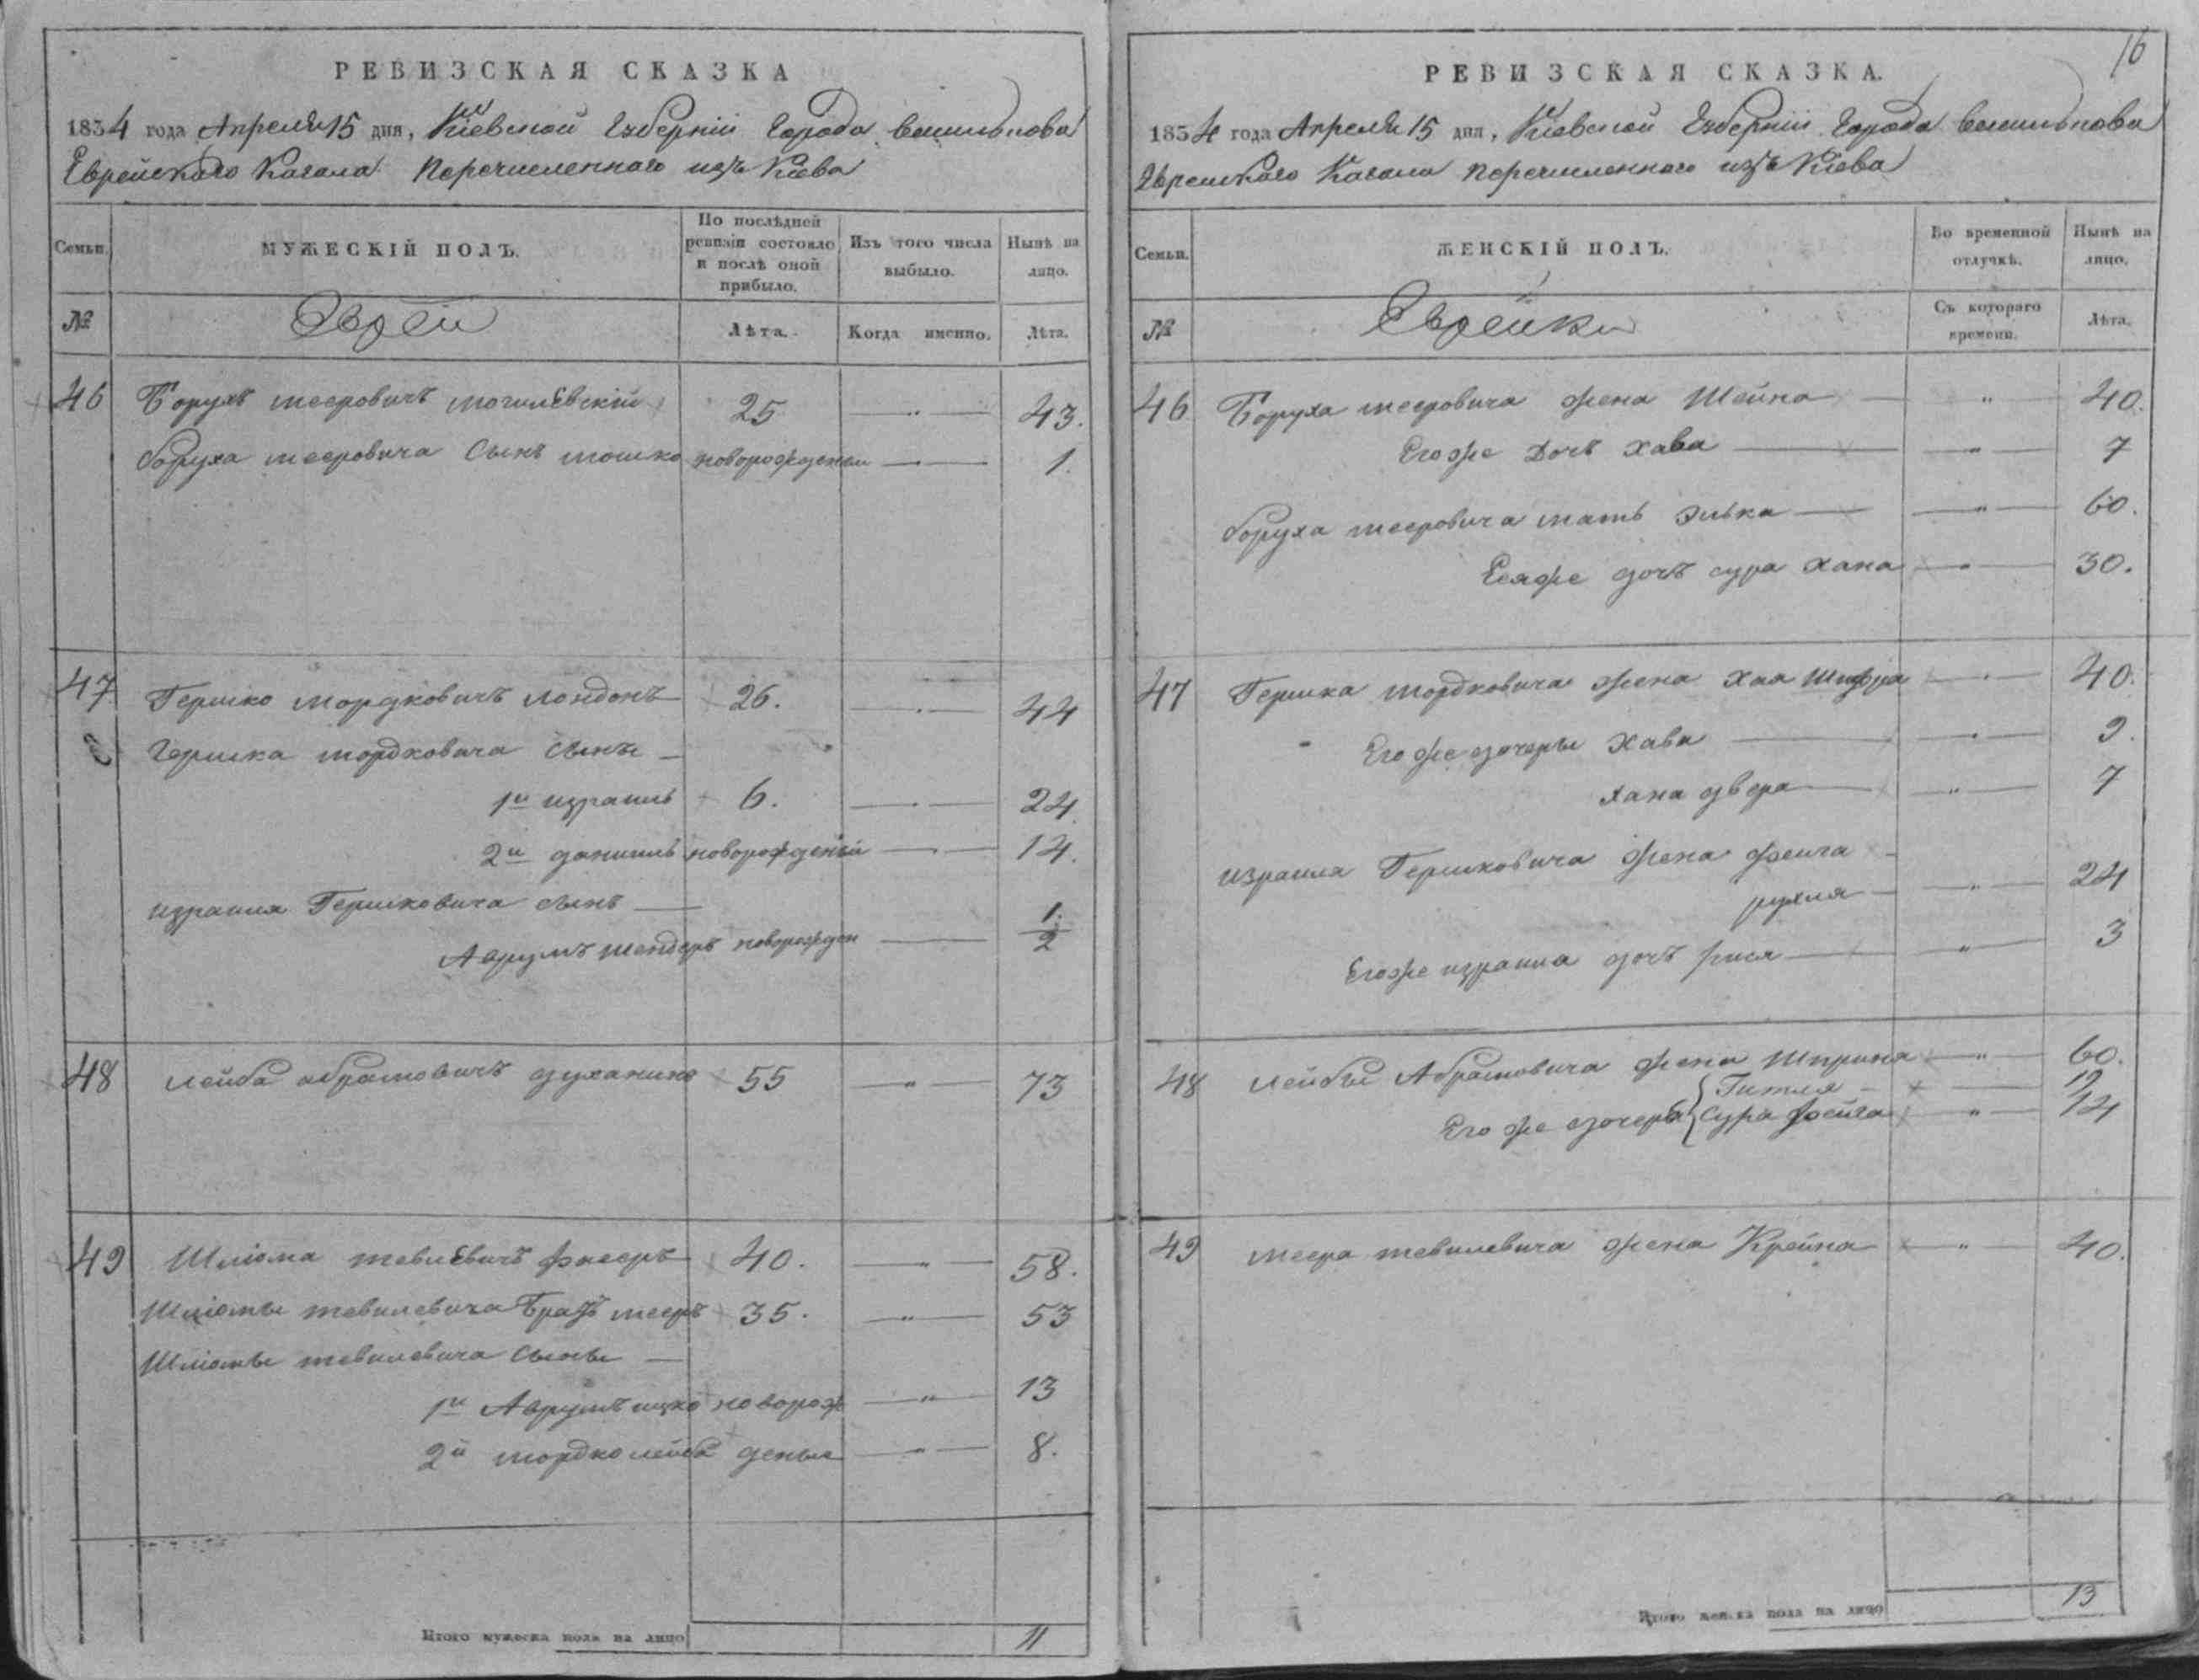 РЕВИЗСКАЯ СКАЗКА
1834 года Апреля 15 дня, Кіевской Губерніи Города Василькова
Еврейскаго Кагала Перечисленнаго изъ Кіева
Семьи.
МУЖЕСКІЙ ПОЛЪ.
По послѣдней ревизіи состояло и послѣ оной прибыло.
Изъ того числа выбыло.
Нынѣ на лицо.
№
Евреи
Лѣта.
Когда именно.
Лѣта.
46 Борухъ мееровичъ могилевскій 25 — " — 43.
боруха мееровича сынъ мошко новорожденый — 1.
47 Гершко мордковичъ лондонъ 26. — " — 44
Гершка мордковича сыны —
1й израиль 6. — " — 24.
2й данииль новорожденый — " — 14.
израиля Гершковича сынъ —
Аврумъ шендеръ новорожден — 1/2
48 лейба абрамовичъ духанинъ 55 — " — 73
49 Шліома тевлевичъ фиееръ 40. — " — 58.
Шліомы тевилевича братъ мееръ 35. — " — 53
Шліомы тевилевича сыны —
1й Аврумъ ицко новорож — " — 13
2й мордко лейба деные — " — 8.
Итого мужеска пола на лицо 11
16
РЕВИЗСКАЯ СКАЗКА.
1834 года Апреля 15 дня, Кіевской Губерніи Города Василькова
Еврейского Кагала перечисленного изъ Кіева
Семьи.
ЖЕНСКІЙ ПОЛЪ.
Во временной отлучкѣ.
Нынѣ на лицо.
№
Еврейки
Съ котораго времени.
Лѣта.
46 Боруха мееровича жена Шейна — " — 40.
Егоже дочь хава — " — 7
боруха мееровича мать элька — " — 60.
Еяже дочь сура хана — " — 30.
47 Гершка мордковича жена хая шифра — " — 40.
Егоже дочеры хава — " — 9.
хана двера — " — 7
израиля Гершковича жена фейга —
рухля — " — 24
Егоже израиля дочь рися — " — 3
48 лейбы Абрамовича жена Шприна — " — 60.
Гитля — 19
Его же дочеры { сура фейга — " — 14
49 меера тевилевича жена Крейна — " — 40.
Итого женска пола на лицо 13